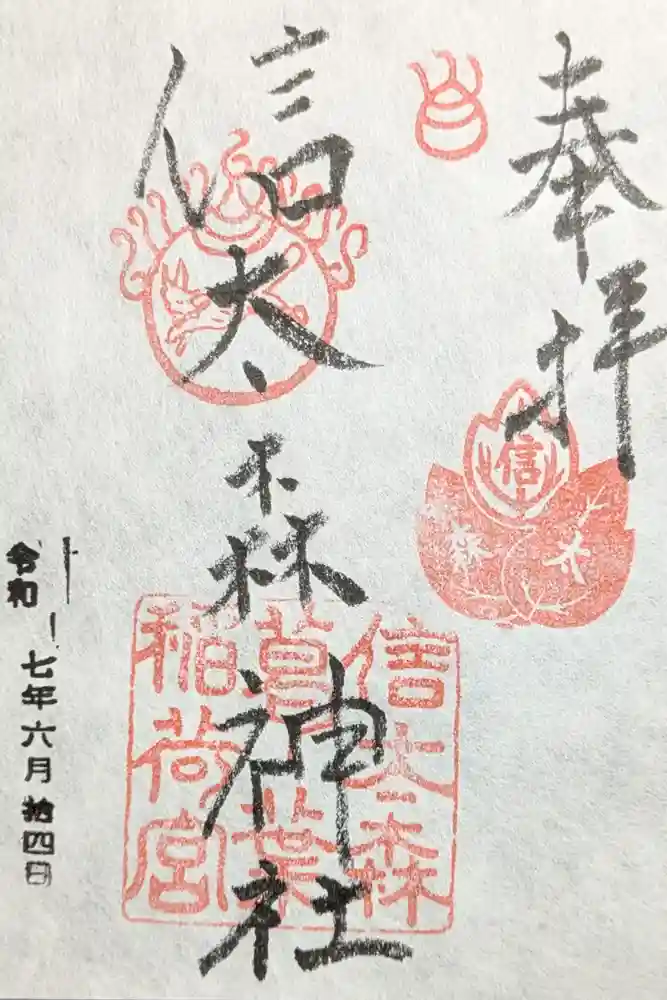 奉拝
信
太
森
信太森神社
信太森
葛葉
稲荷宮
令和
七年六月拾四日